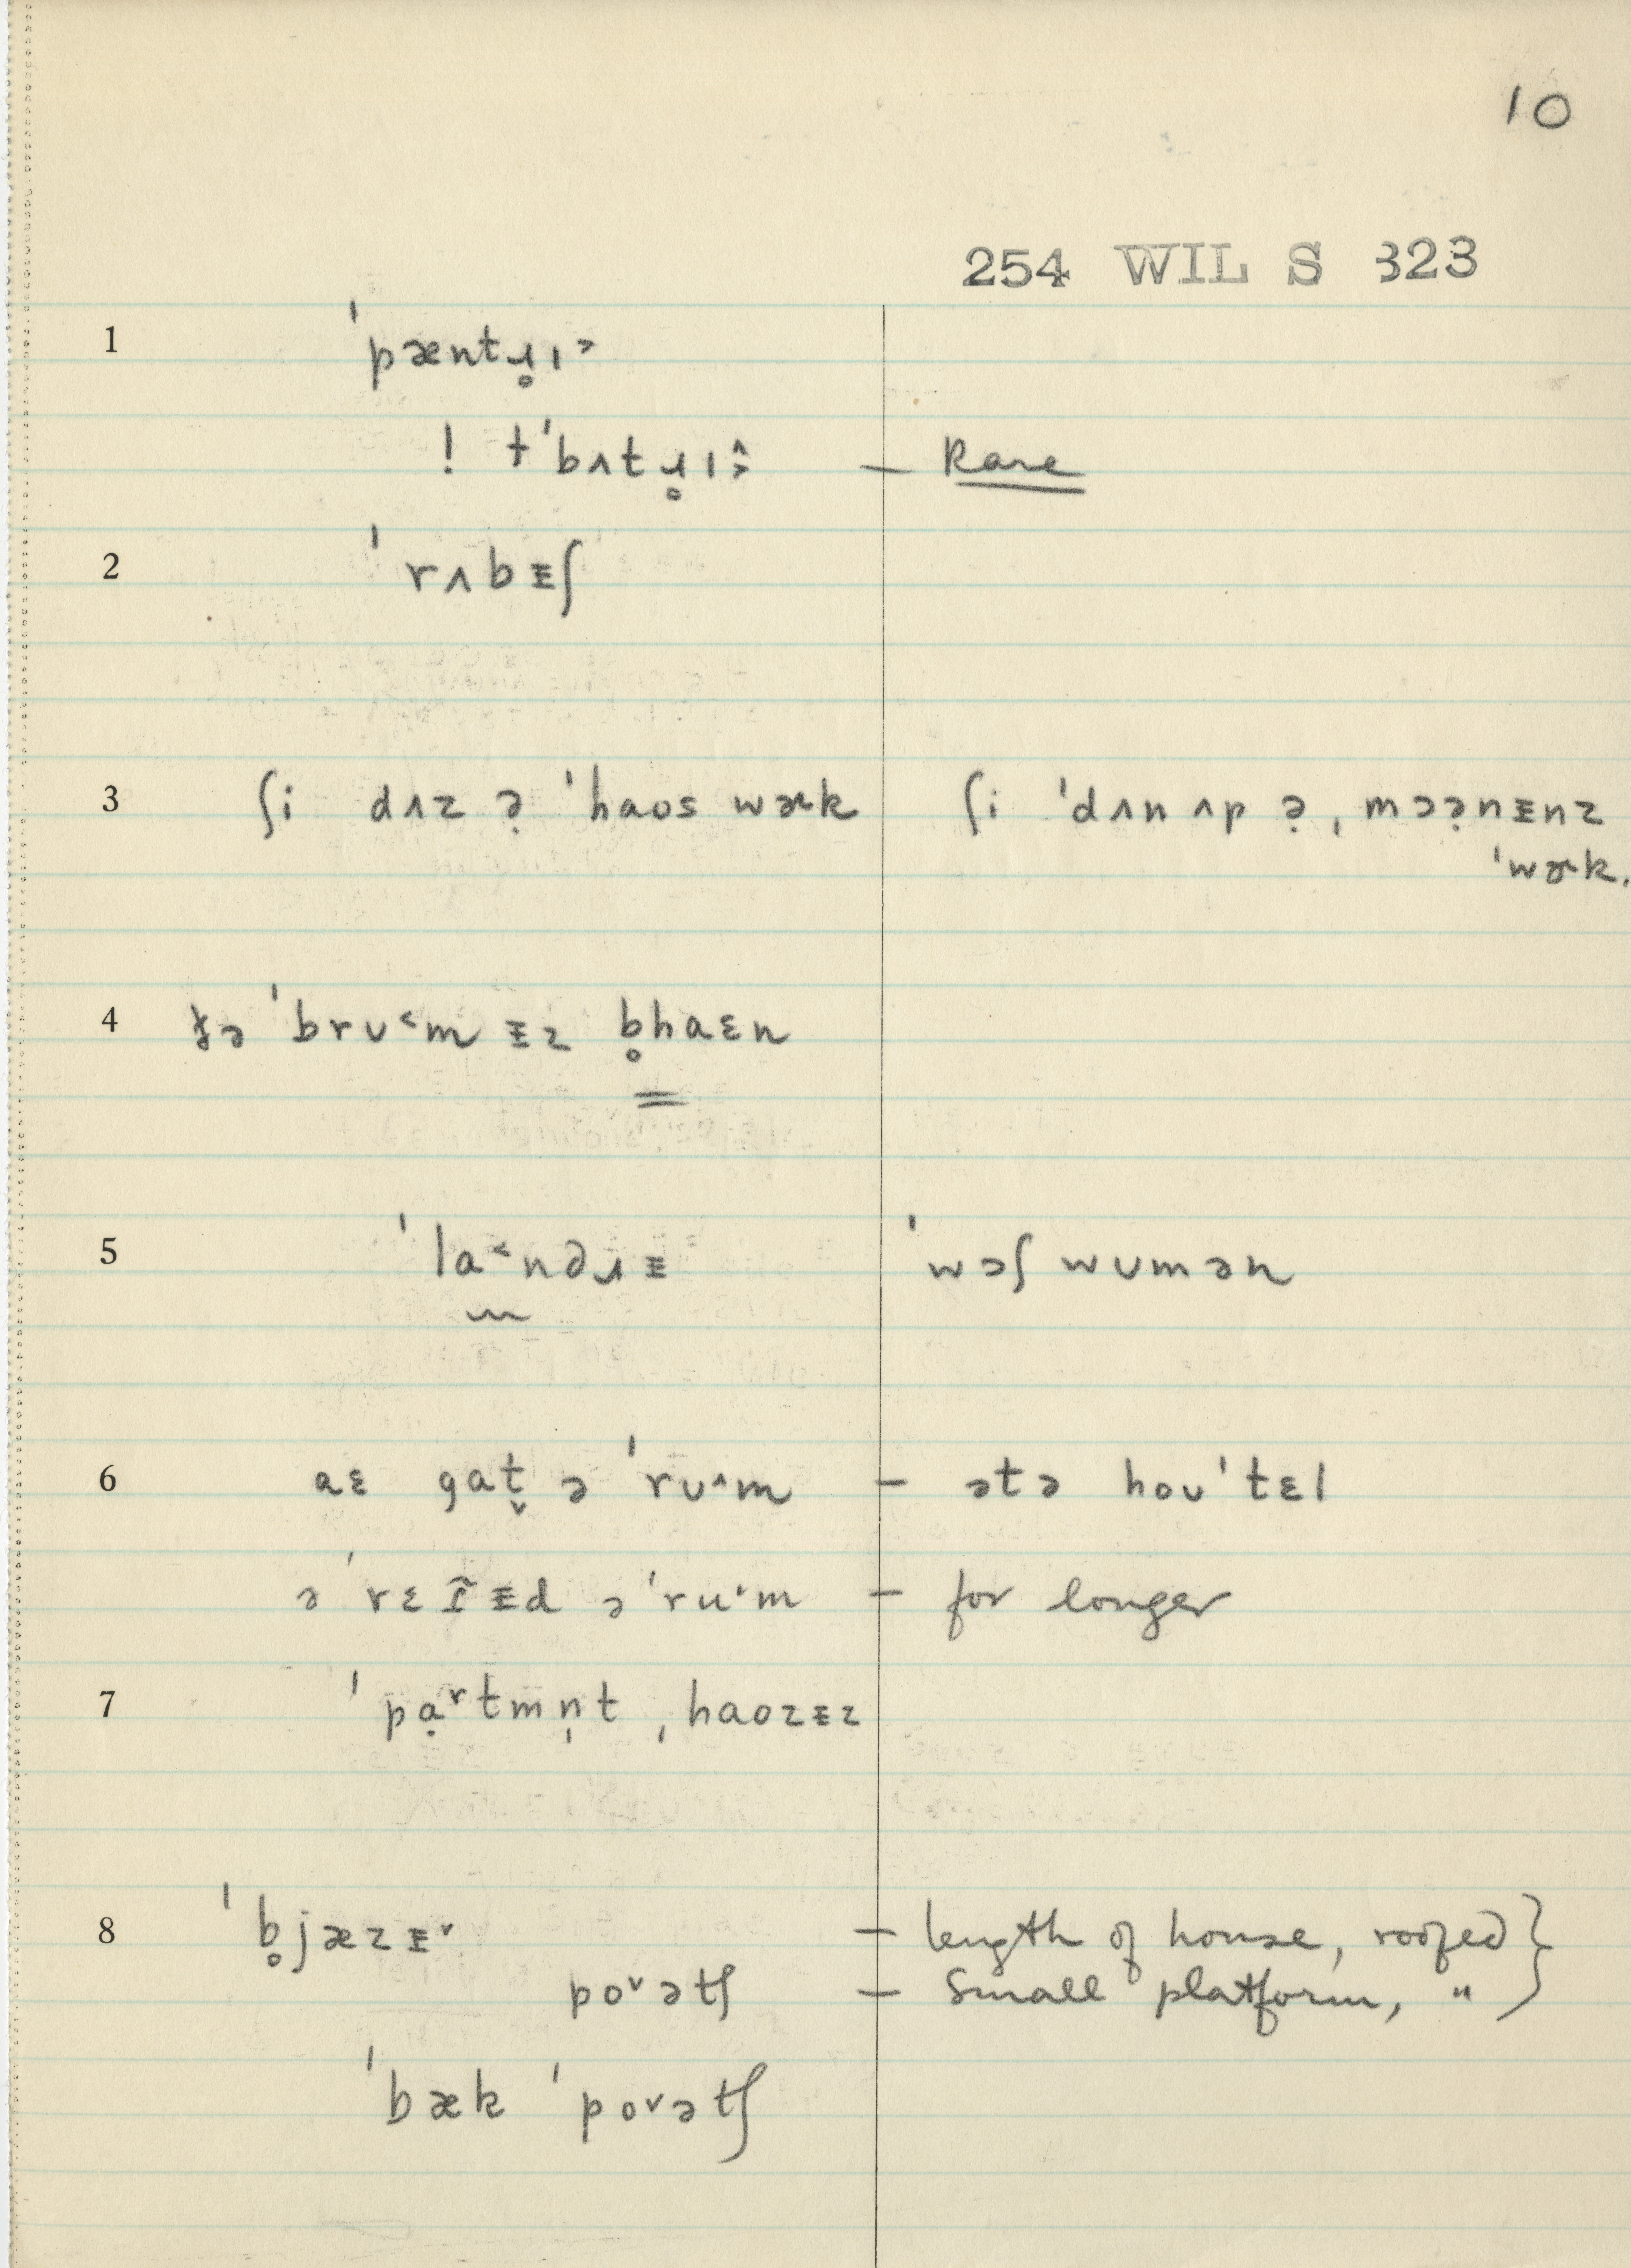 10
254 WIL S 323
1 ˈpæntɹ̥ɪ˃
! †ˈbʌtɹ̥ɪ˄˃ – Rare
2 ˈrʌbᵻʃ
3 ʃi dʌz ə̣ ˈhaos wɚk ʃi ˈdʌn ʌp ə̣ ˌmɔə̣nᵻnz
ˈwɚk.
4 ðə ˈbrʊ˂m ᵻz b̥haɛn
5 ˈla˂ndɹᵻ ˈwɔʃ wʊmən
6 aɛ gat̬ ə ˈrʊ˄m – ətə hoʊˈtɛl
for longer
7 ˈpạʳtmn̩t ˌhaozᵻz
8 ˈb̥jæzᵻ˅ – length of house, roofed }
po˅ətʃ – small platform, " }
ˈbæk ˈpo˅ətʃ